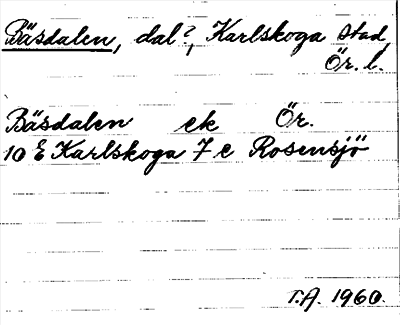 Bäsdalen, dal?, Karlskoga stad,
Ör. l.
Bäsdalen ek Ör.
10 E Karlskoga 7 e Rosensjö
T.A. 1960.